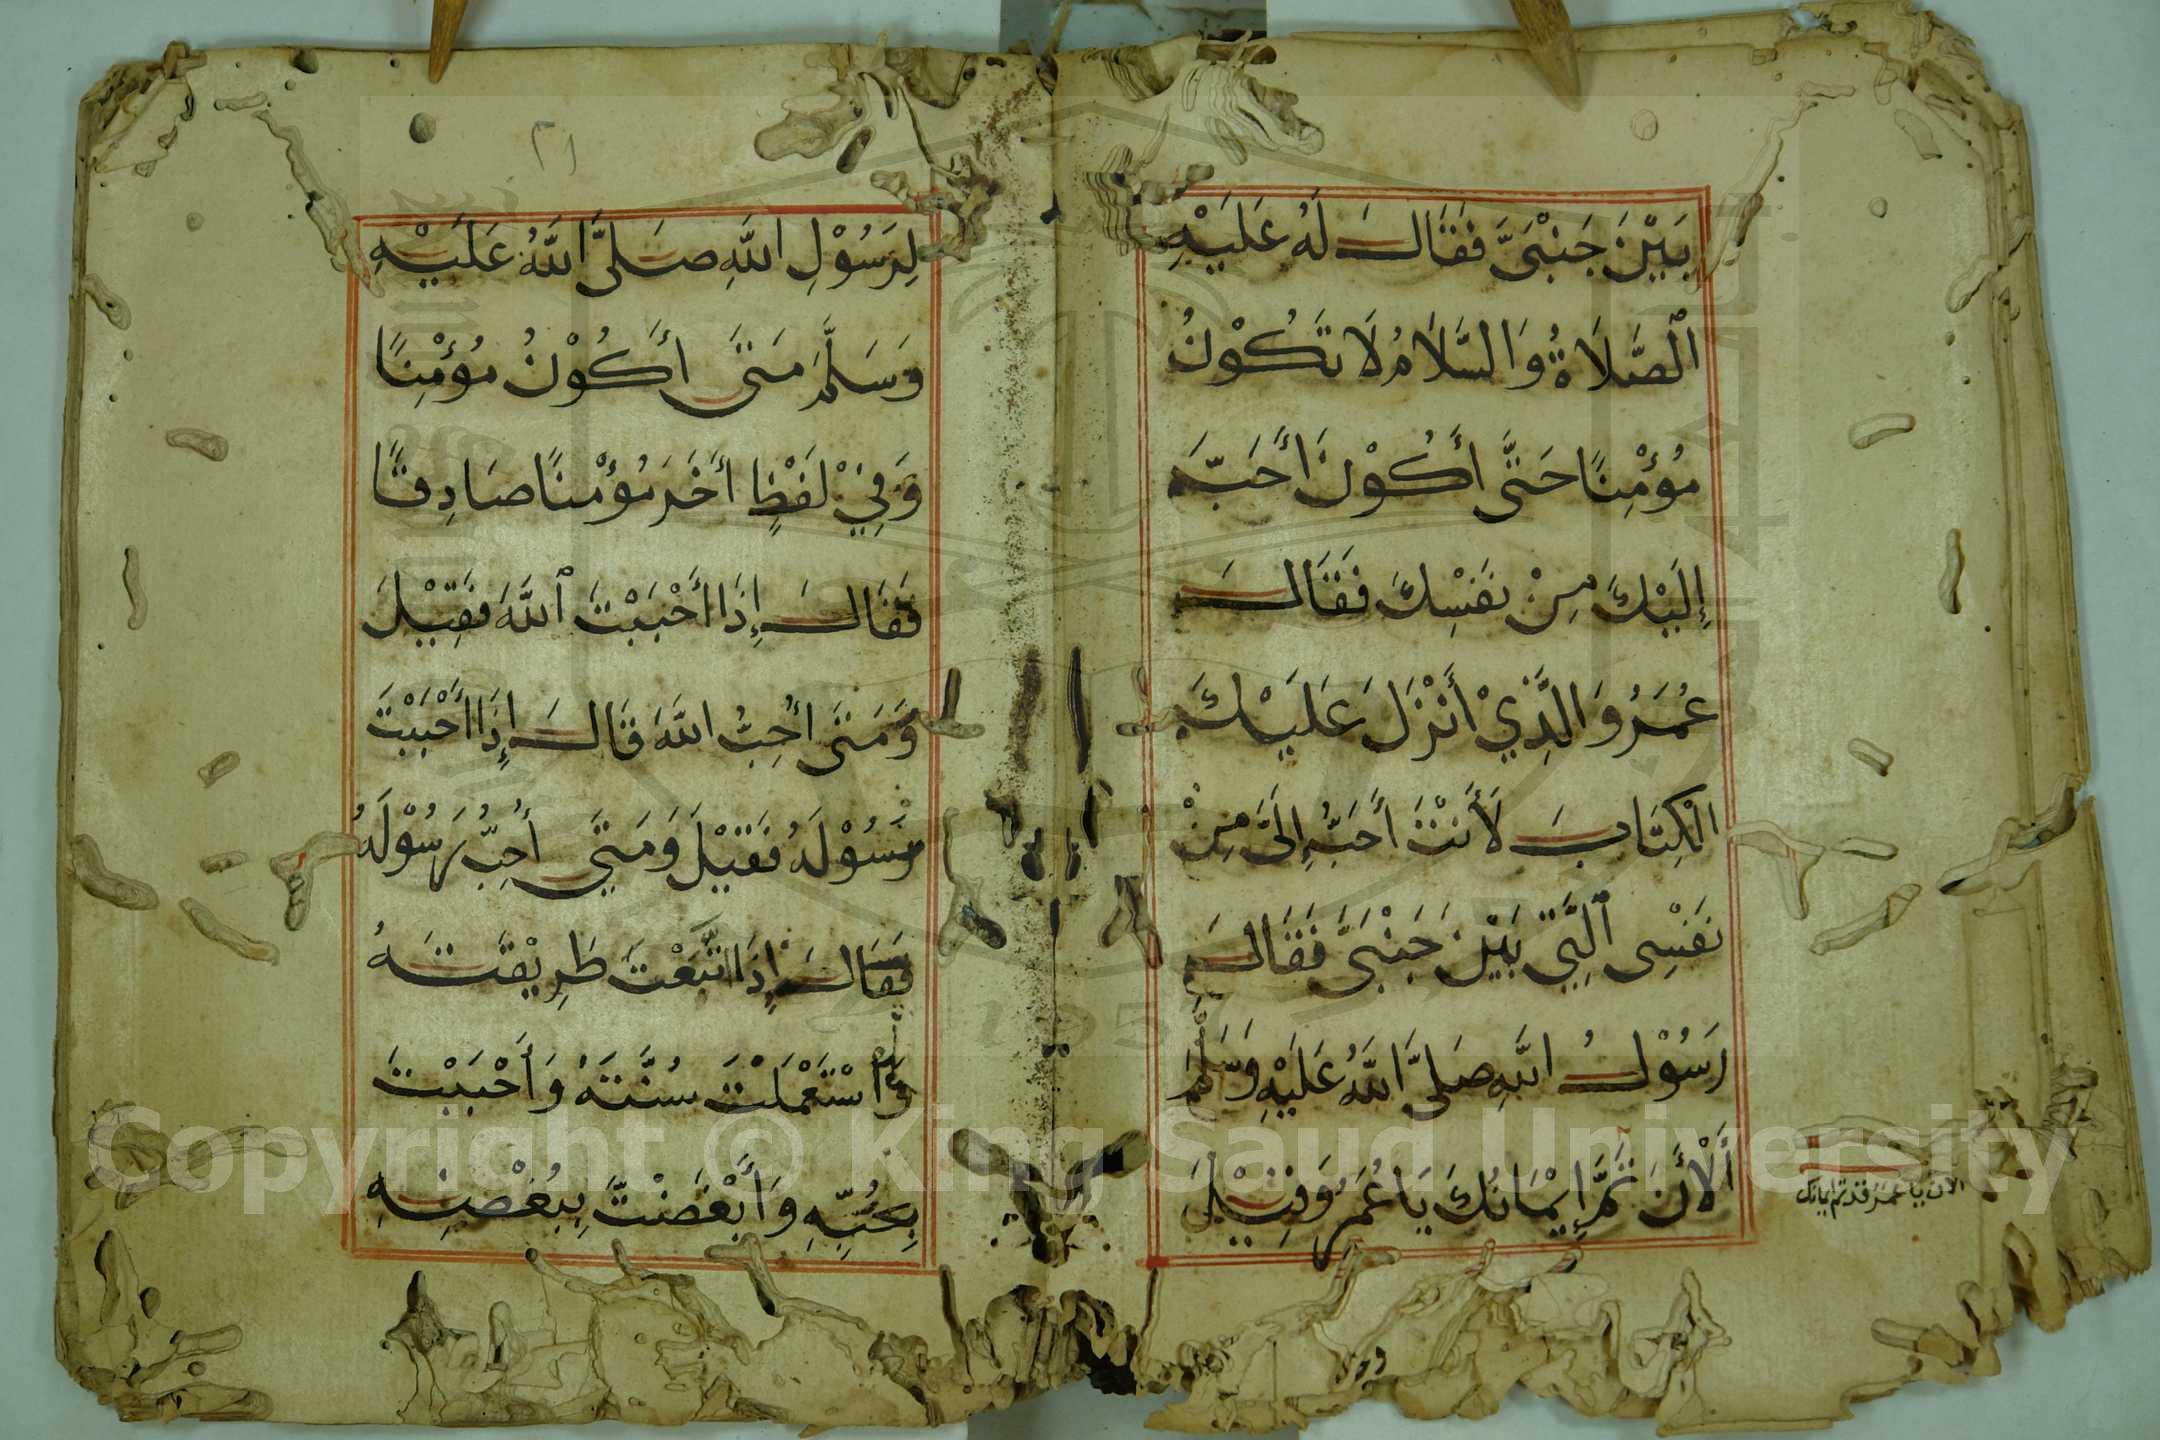 بَيْنَ جَنْبَىَّ فَقَالَ لَهُ عَلَيْهِ
ٱلصَّلَاةُ وَالسَّلَامُ لَا تَكُوْنُ
مُؤْمِنًا حَتَّى أَكُوْنَ أَحَبَّ
إِلَيْكَ مِنْ نَفْسِكَ فَقَالَ
عُمَرُ وَالَّذِيْ أَنْزَلَ عَلَيْكَ
الْكِتَابَ لَأَنْتَ أَحَبُّ إِلَىَّ مِنْ
نَفْسِى ٱلَّتِيْ بَيْنَ جَنْبَىَّ فَقَالَ
رَسُوْلُ اللَّهِ صَلَّى اللَّهُ عَلَيْهِ وَسَلَّمَ
ٱلْأَنَ تَمَّ إِيْمَانُكَ يَا عُمَرُ وَقِيْلَ
الآن يا عمر قد تم ايمانك
وقيل
٢١
لِرَسُوْلِ اللَّهِ صَلَّى اللَّهُ عَلَيْهِ
وَسَلَّمَ مَتَى أَكُوْنُ مُؤْمِنًا
وَفِيْ لَفْظٍ أَخَرَ مُؤْمِنًا صَادِقًا
فَقَالَ إِذَا أَحْبَبْتَ ٱللَّهَ فَقِيْلَ
وَمَتَى أُحِبُّ اللَّهَ قَالَ إِذَا أَحْبَبْتَ
رَسُوْلَهُ فَقِيْلَ وَمَتَى أُحِبُّ رَسُوْلَهُ
فَقَالَ إِذَا اتَّبَعْتَ طَرِيْقَتَهُ
وَاسْتَعْمَلْتَ سُنَّتَهُ وَأَحْبَبْتَ
بِحُبِّهِ وَأَبْغَضْتَ بِبُغْضِهِ
Copyright © King Saud University
1957